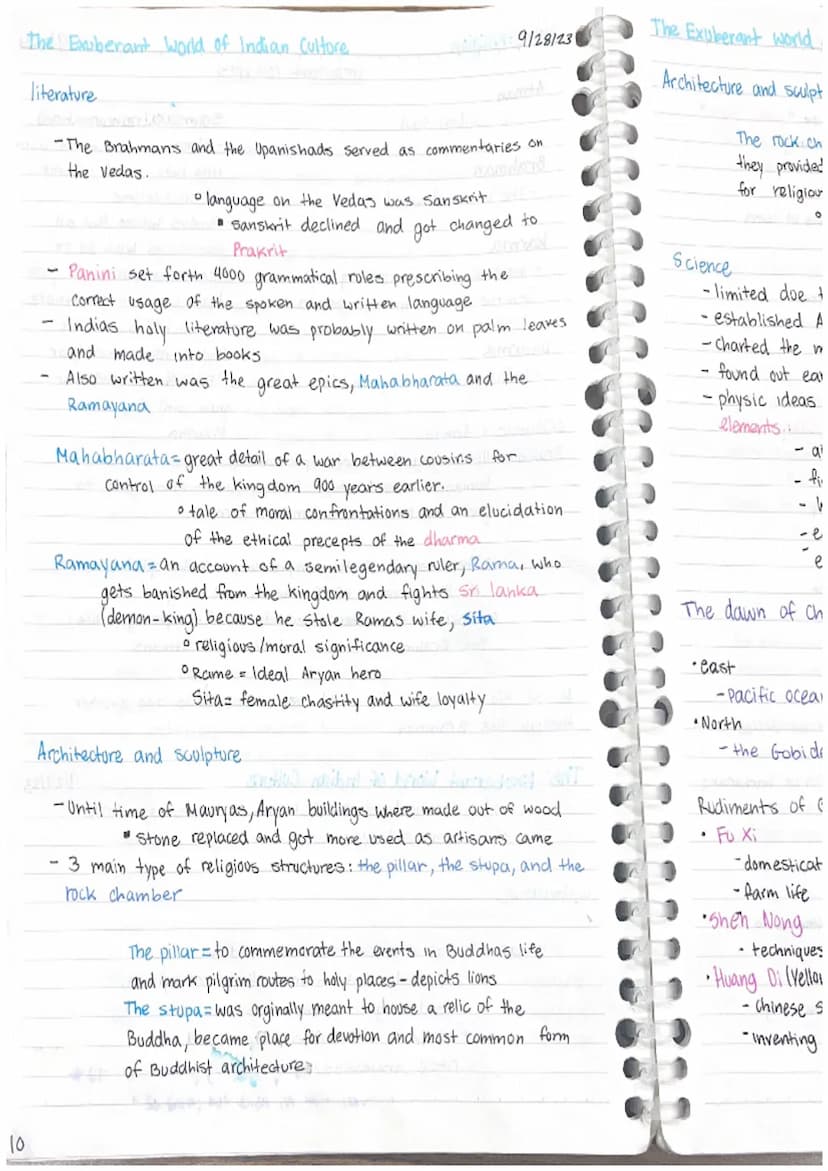 The Exuberant World of Indian Culture
9/28/23
literature
- The Brahmans and the Upanishads served as commentaries on
the Vedas.
° language on the Vedas was Sanskrit
▪ Sanskrit declined and got changed to
Prakrit
- Panini set forth 4000 grammatical rules prescribing the
correct usage of the spoken and written language
- Indias holy literature was probably written on palm leaves
and made into books
- Also written was the great epics, Mahabharata and the
Ramayana
Mahabharata = great detail of a war between cousins for
control of the kingdom 900 years earlier.
° tale of moral confrontations and an elucidation
of the ethical precepts of the dharma
Ramayana = an account of a semilegendary ruler, Rama, who
gets banished from the kingdom and fights Sri lanka
(demon-king) because he stole Ramas wife, Sita
° religious/moral significance
° Rame = Ideal Aryan hero
Sita = female chastity and wife loyalty
Architecture and sculpture
- Until time of Mauryas, Aryan buildings where made out of wood
▪ Stone replaced and got more used as artisans came
- 3 main type of religious structures: the pillar, the stupa, and the
rock chamber
The pillar = to commemorate the events in Buddhas life
and mark pilgrim routes to holy places - depicts lions
The stupa = was orginally meant to house a relic of the
Buddha, became place for devotion and most common form
of Buddhist architecture,
10
The Exuberant world
Architecture and sculpt
The rock ch
they provided
for religiou
°
Science
- limited due t
- established A
- charted the m
- found out ear
- physic ideas
elements:
- ai
- fi
- w
- e
- e
The dawn of Ch
• East
- Pacific ocea
• North
- the Gobi de
Rudiments of C
• Fu Xi
- domesticat
- farm life
• Shen Nong
• techniques
• Huang Di (Yello
- Chinese s
- inventing